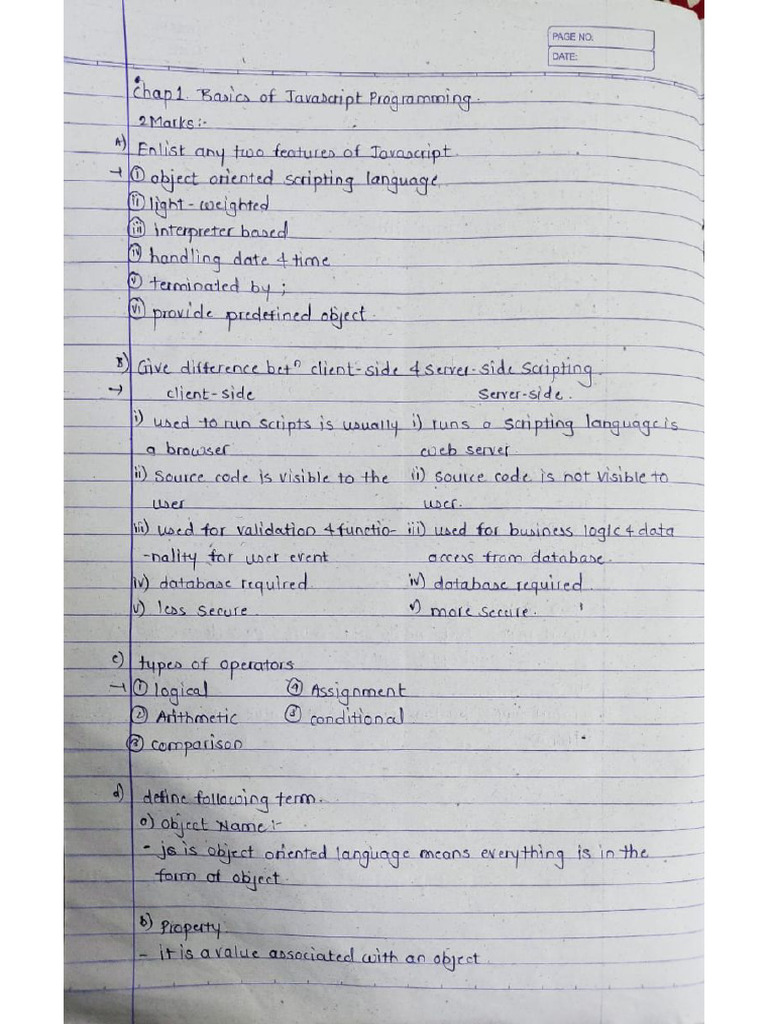 PAGE NO.
DATE:
Chap 1. Basics of Javascript Programming.
2 Marks:-
A) Enlist any two features of Javascript.
→ ① object oriented scripting language
ⅱ light-weighted
ⅲ interpreter based
ⅳ handling date & time
ⅴ terminated by ;
ⅵ provide predefined object.
B) Give difference betⁿ client-side & server-side scripting.
→ client-side Server-side.
i) used to run scripts is usually i) runs a scripting language is
a browser web server.
ii) Source code is visible to the ii) source code is not visible to
user user.
iii) used for validation & functio- iii) used for business logic & data
-nality for user event access from database.
iv) database required. iv) database required.
v) less secure. v) more secure.
c) types of operators
→ ① logical ④ Assignment
② Arithmetic ⑤ conditional
③ comparison
d) define following term.
a) Object Name:-
- js is object oriented language means everything is in the
form of object.
b) Property.
- it is a value associated with an object.